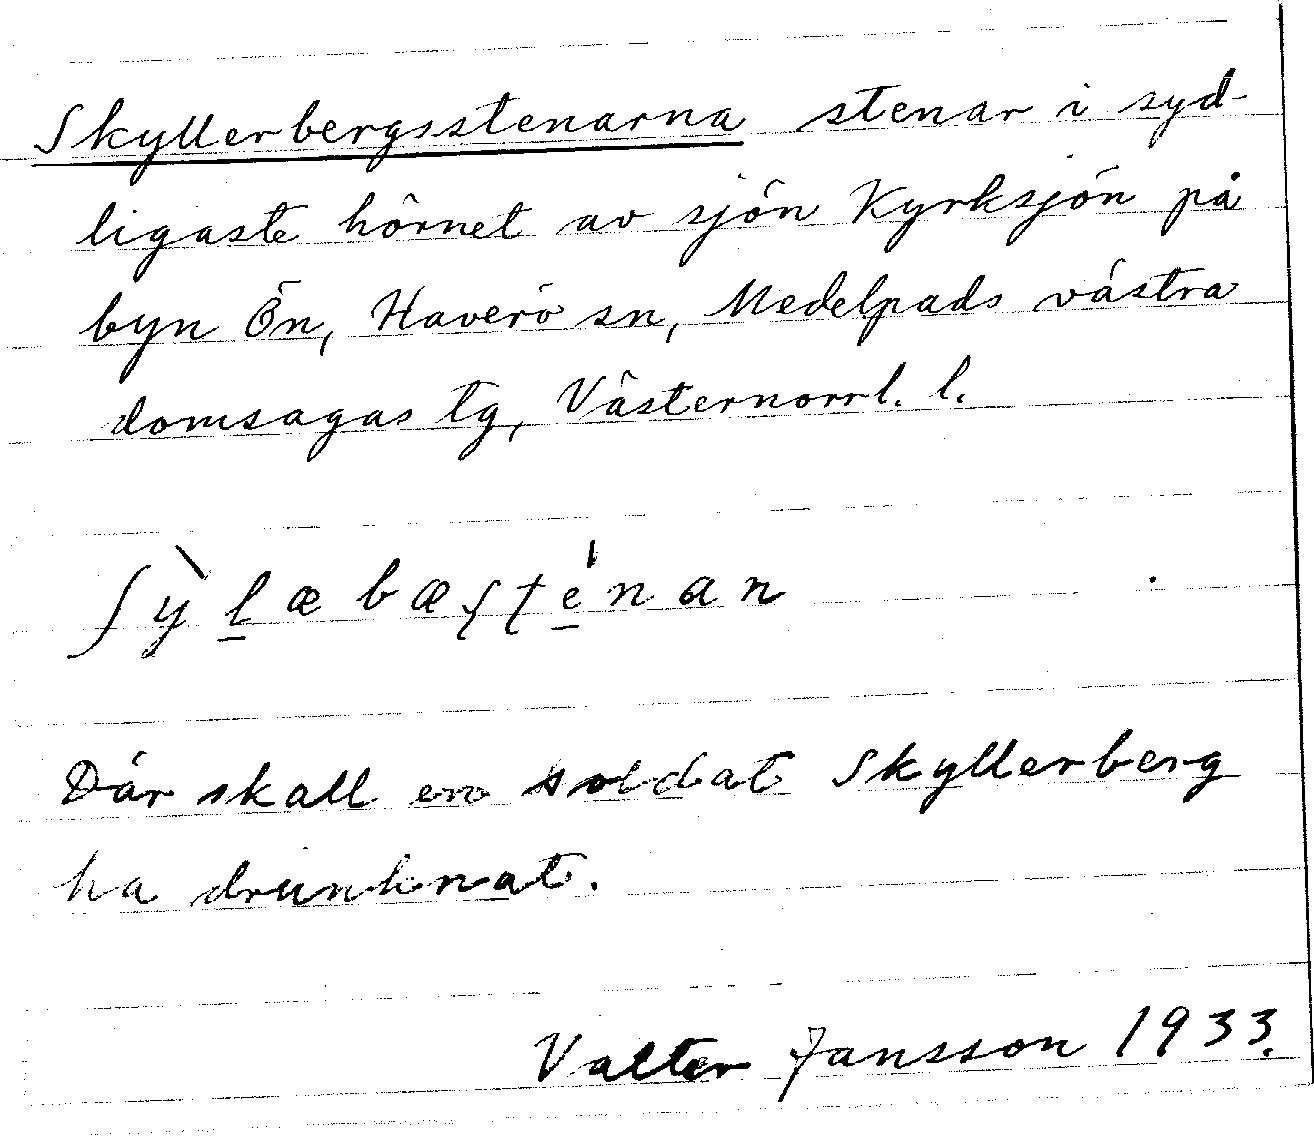 Skyllerbergsstenarna stenar i syd-
ligaste hörnet av sjön Kyrksjön på
byn Ön, Haverö sn, Medelpads västra
domsagas tg, Västernorrl. l.
ʃỳl̠æbæʂʈé̠nan
Där skall en soldat Skyllerberg
ha drunknat.
Valter Jansson 1933.